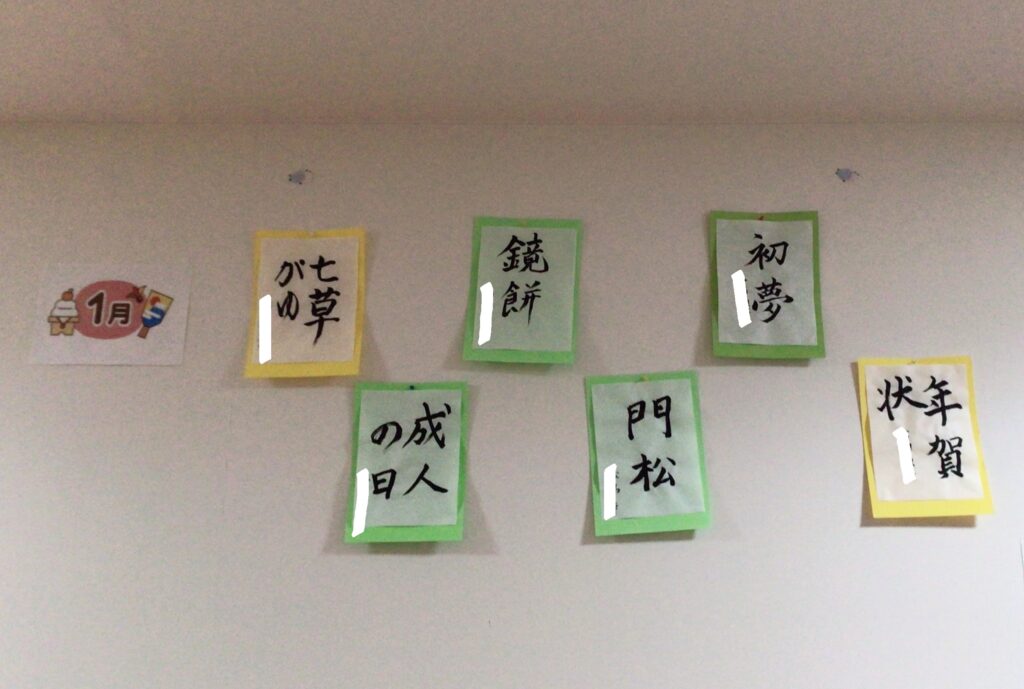 1月
七草
がゆ
鏡餅
初夢
成人
の日
門松
年賀
状